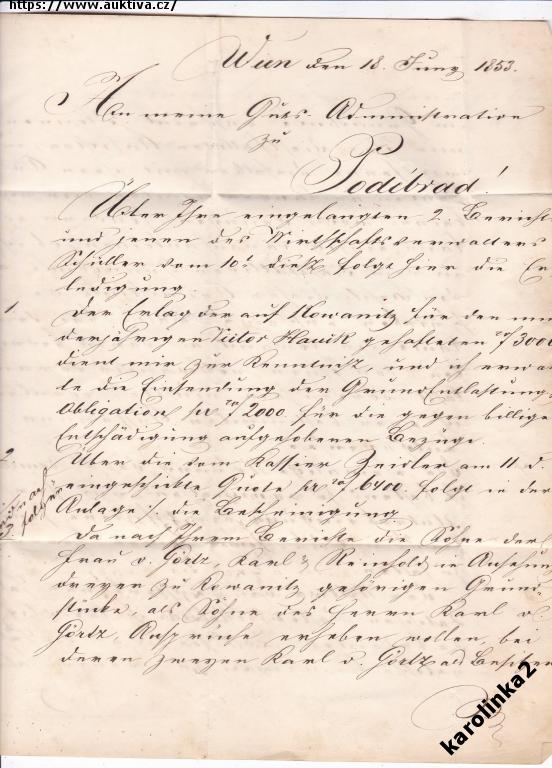 https://www.auktiva.cz/
Wien den 18. Juny 1853.
An meine Guts-Administration
zu
Podébrad!
Über Ihre eingelangten 2 Berichte
und jenen des Wirthschaftsverwalters
Schüller vom 10t dieß folgt hier die Er
ledigung.
1. Der Erlag der auf Kowanitz für den min
derjährigen Victor Hawik gehafteten f 3000
dient mir zur Kenntniß, und ich erwar
te die Einsendung der GrundEntlastungs
Obligation pr f 2000 für die gegen billige
Entschädigung aufgehobenen Bezüge.
2. Über die dem Kassier Zeidler am 11 d.
eingeschickte Quote pr f 6400 folgt in der
Anlage ./. die Bescheinigung
Da nach Ihrem Berichte die Söhne der
Frau v. Görtz, Karl & Reinhold in Ansehung
dreyer zu Kowanitz gehörigen Grund
stücke, als Söhne des Herrn Karl v.
Görtz, Ansprüche erheben wollen, bei
deren zweyen Karl v. Görtz ad Besitzer
karolinka2